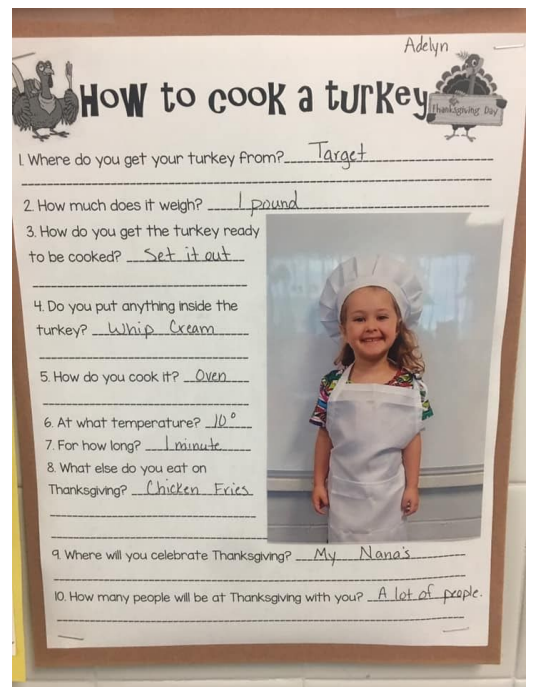 Adelyn
How to cook a turkey
Thanksgiving Day
1. Where do you get your turkey from? Target
2. How much does it weigh? 1 pound
3. How do you get the turkey ready
to be cooked? Set it out
4. Do you put anything inside the
turkey? Whip Cream
5. How do you cook it? Oven
6. At what temperature? 10°
7. For how long? 1 minute
8. What else do you eat on
Thanksgiving? Chicken Fries
9. Where will you celebrate Thanksgiving? My Nana's
10. How many people will be at Thanksgiving with you? A lot of people.